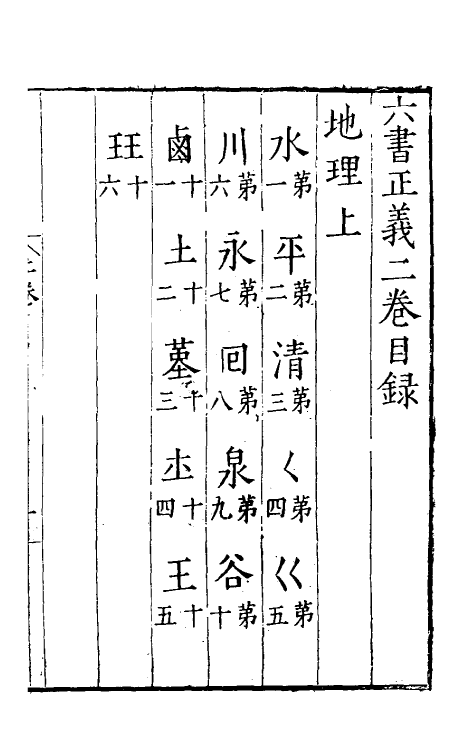 六書正義二卷目録
地理上
水第一 平第二 清第三 ㄑ第四 巜第五
川第六 永第七 回第八 泉第九 谷第十
鹵十一 土十二 墓十三 𡈼十四 王十五
玨十六